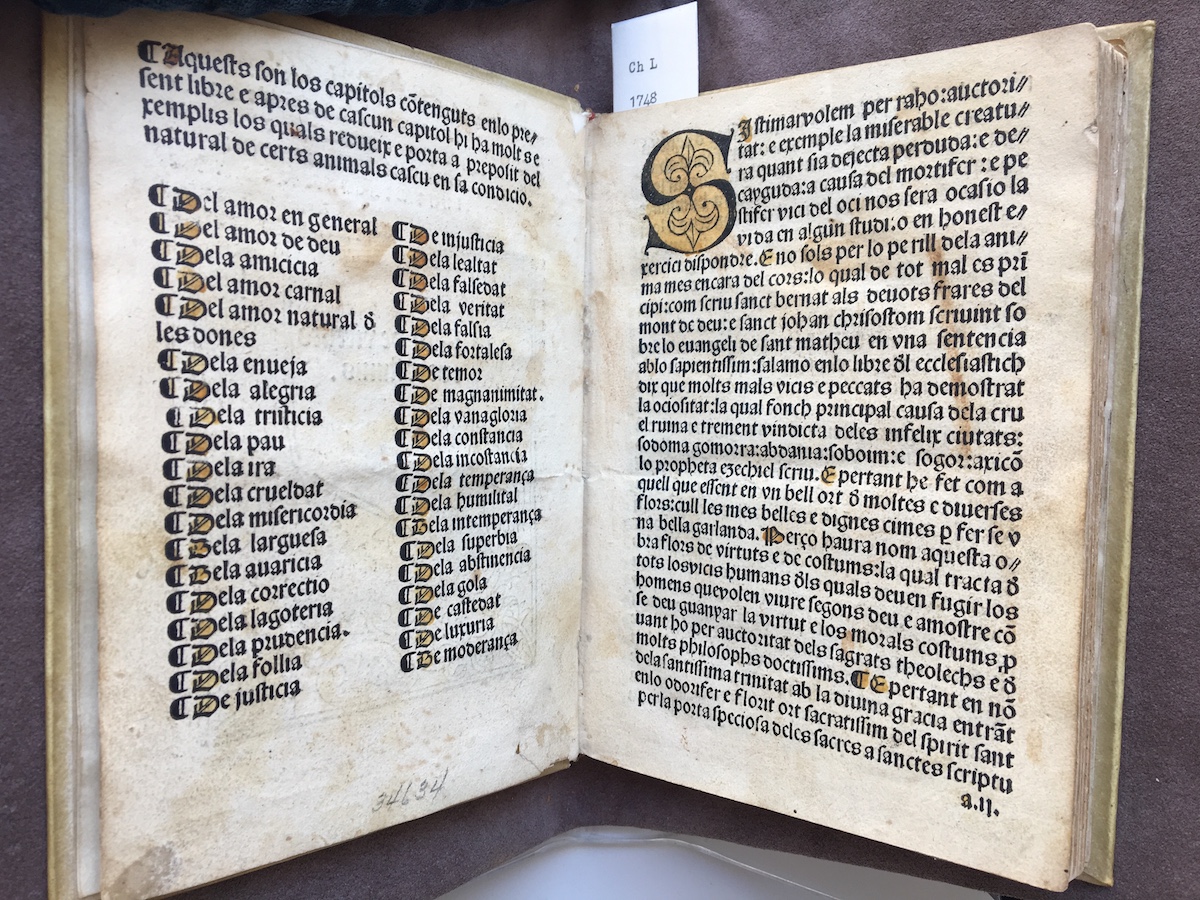 ¶Aquests son los capitols cōtenguts enlo pre//
sent libre e apres de cascun capitol hi ha molt se
xemplis los quals redueix e porta a preposit del
natural de certs animals cascu en sa condicio.
¶Del amor en general
¶Del amor de deu
¶Dela amicicia
¶Del amor carnal
¶Del amor natural đ
les dones
¶Dela enueja
¶Dela alegria
¶Dela tristicia
¶Dela pau
¶Dela ira
¶Dela crueldat
¶Dela misericordia
¶Dela larguesa
¶Dela auaricia
¶Dela correctio
¶Dela lagoteria
¶Dela prudencia.
¶Dela follia
¶De justicia
¶De injusticia
¶Dela lealtat
¶Dela falsedat
¶Dela veritat
¶Dela falsia
¶Dela fortalesa
¶De temor
¶De magnanimitat.
¶Dela vanagloria
¶Dela constancia
¶Dela incostancia
¶Dela temperança
¶Dela humilitat
¶Dela intemperança
¶Dela superbia
¶Dela abstinencia
¶Dela gola
¶De castedat
¶De luxuria
¶De moderança
34634
Ch L
1748
SIstimarvolem per raho:auctori//
tat: e exemple la miserable creatu//
ra quant sia dejecta perduda: e de//
cayguda: a causa del mortifer : e pe
stifer vici del oci nos sera ocasio la
vida en algūn studi.o en honest e//
xercici dispondre. E no sols per lo pe rill dela ani//
ma mes encara del cors: lo qual de tot mal es prī
cipi: com scriu sanct bernat als deuots frares del
mont de deu: e sanct johan chrisostom scriuint so
bre lo euangeli de sant matheu en vna sentencia
ablo sapientissim: salamo enlo libre đl ecclesiastich
dix que molts mals vicis e peccats ha demostrat
la ociositat: la qual fonch principal causa dela cru
el ruina e trement vindicta deles infelix ciutats:
sodoma gomorra: abdania: soboim: e sogor: axicō
lo propheta ezechiel scriu. E pertant he fet com a
quell que essent en vn bell ort đ moltes e diuerses
flors: cull les mes belles e dignes cimes ꝑ fer se v
na bella garlanda. Perço haura nom aquesta o//
bra flors de virtuts e de costums: la qual tracta đ
tots losvicis humans đls quals deuen fugir los
homens quevolen viure segons deu e amostre cō
se deu guanyar la virtut e los morals costums. ꝓ
uant ho per auctoritat dels sagrats theolechs e đ
molts philosophs doctissims. ¶E pertant en nō
dela santissima trinitat ab la diuina gracia entrāt
enlo odorifer e florit ort sacratissim del spirit sant
perla porta speciosa deles sacres a sanctes scriptu
a.ij.